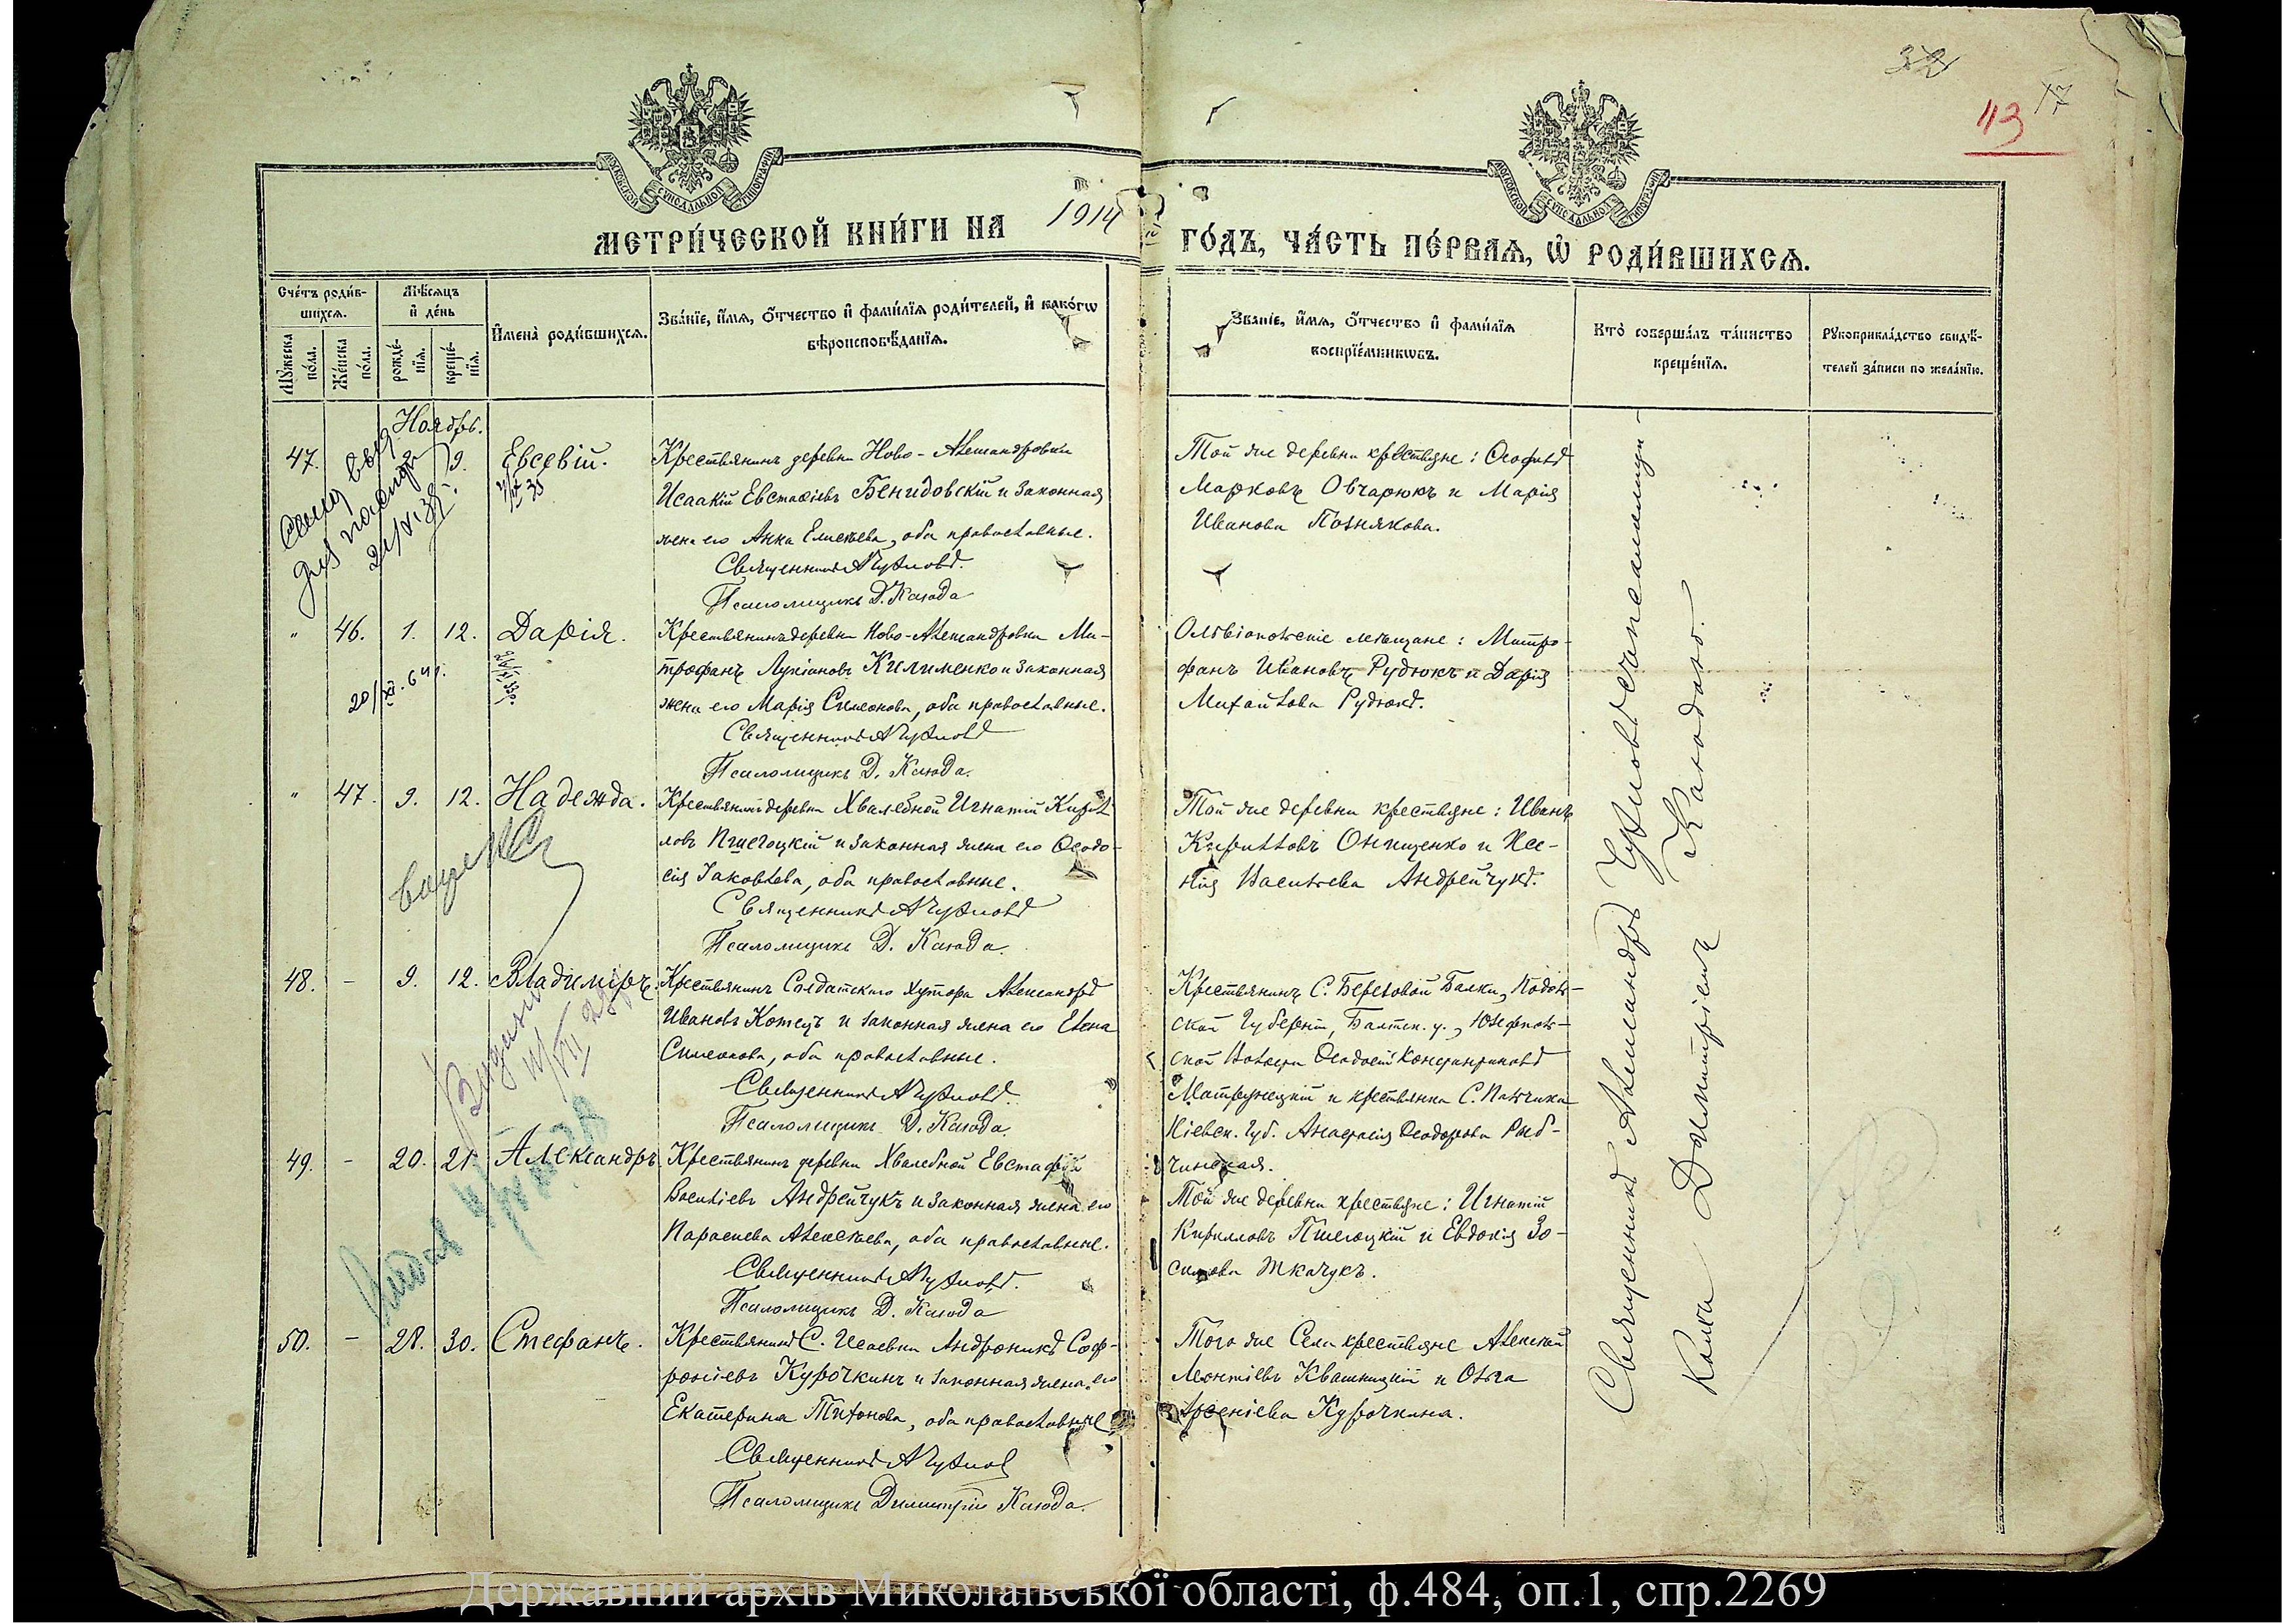 32
17
113
МОСКОВСКОЙ СУНОДАЛЬНОЙ ТИПОГРАФІИ
МОСКОВСКОЙ СУНОДАЛЬНОЙ ТИПОГРАФІИ
МЕТРИ́ЧЕСКОЙ КНИ́ГИ НА 1914 ГО́ДЪ, ЧА́СТЬ ПЕ́РВАѦ, Ѡ РОДИ́ВШИХСѦ.
Сче́тъ роди́в-
шихсѧ.
Мꙋжеска по́ла.
Же́нска по́ла.
Мѣ́сѧцъ
и де́нь
рожде́-
нїѧ.
креще́-
нїѧ.
И҆мена̀ роди́вшихсѧ.
Зва́нїе, и҆́мѧ, ѻ҆́тчество и҆ фами́лїѧ роди́телей, и҆ како́гѡ
вѣроисповѣ́данїѧ.
Зва́нїе, и҆́мѧ, ѻ҆́тчество и҆ фами́лїѧ
воспрїе́мникѡвъ.
Кто̀ соверша́лъ та́инство
креще́нїѧ.
Рꙋкоприкла́дство свидѣ́-
телей за́писи по жела́нїю.
Ноябрь.
47. 9. Евсевій.
Крестьянинъ деревни Ново-Александровки
Исаакій Евстафіевъ Бенидовскій и законная
жена его Анна Елисѣева, оба православные.
Священникъ А Чуриловъ.
Псаломщикъ Д. Каюда
Той же деревни крестьяне: Ѳеофилъ
Марковъ Овчарюкъ и Марія
Иванова Познякова.
21/VI 35.
" 46. 1. 12. Дарія.
20/XI. 64 г.
Крестьянинъ деревни Ново-Александровки Ми-
трофанъ Лукіановъ Килименко и законная
жена его Марія Симеонова, оба православные.
Священникъ А Чуриловъ
Псаломщикъ Д. Каюда.
Ольвіопольскіе мѣщане: Митро-
фанъ Ивановъ Рудюкъ и Дарія
Михайлова Рудюкъ.
" 47. 9. 12. Надежда.
Крестьянинъ деревни Хвалебной Игнатій Кирил-
ловъ Пшегоцкій и законная жена его Ѳеодо-
сія Іаковлева, оба православные.
Священникъ А Чуриловъ
Псаломщикъ Д. Каюда.
Той же деревни крестьяне: Иванъ
Кирилловъ Онищенко и Ксе-
нія Васильева Андрейчукъ.
48. - 9. 12. Владиміръ.
Крестьянинъ Солдатскаго хутора Александръ
Ивановъ Котецъ и законная жена его Елена
Симеонова, оба православные.
Священникъ А Чуриловъ.
Псаломщикъ Д. Каюда.
Крестьянинъ С. Березовой Балки, Подоль-
ской Губерніи, Балтск. у.,
ской Волости Ѳеодосій Константиновъ
и крестьянка С.
Кіевск. Губ. Анастасія Ѳеодорова Рыб-
чинская.
49. - 20. 21. Александръ
Крестьянинъ деревни Хвалебной Евстафій
Васильевъ Андрейчукъ и законная жена его
Параскева Алексѣева, оба православные.
Священникъ А Чуриловъ.
Псаломщикъ Д. Каюда
Той же деревни крестьяне: Игнатій
Кирилловъ Пшегоцкій и Евдокія Зо-
симова Ткачукъ.
50. - 28. 30. Стефанъ.
Крестьянинъ С. Исаевки Андроникъ Соф-
роніевъ Курочкинъ и законная жена его
Екатерина Титонова, оба православные
Священникъ А Чуриловъ
Псаломщикъ Димитрій Каюда.
Того же Села крестьяне Алексѣй
Леонтіевъ Квашницкій и Ольга
Арсеніева Курочкина.
Священникъ Александръ Чуриловъ съ псаломщи-
комъ Димитріемъ Каюдою.
Державний архів Миколаївської області, ф.484, оп.1, спр.2269